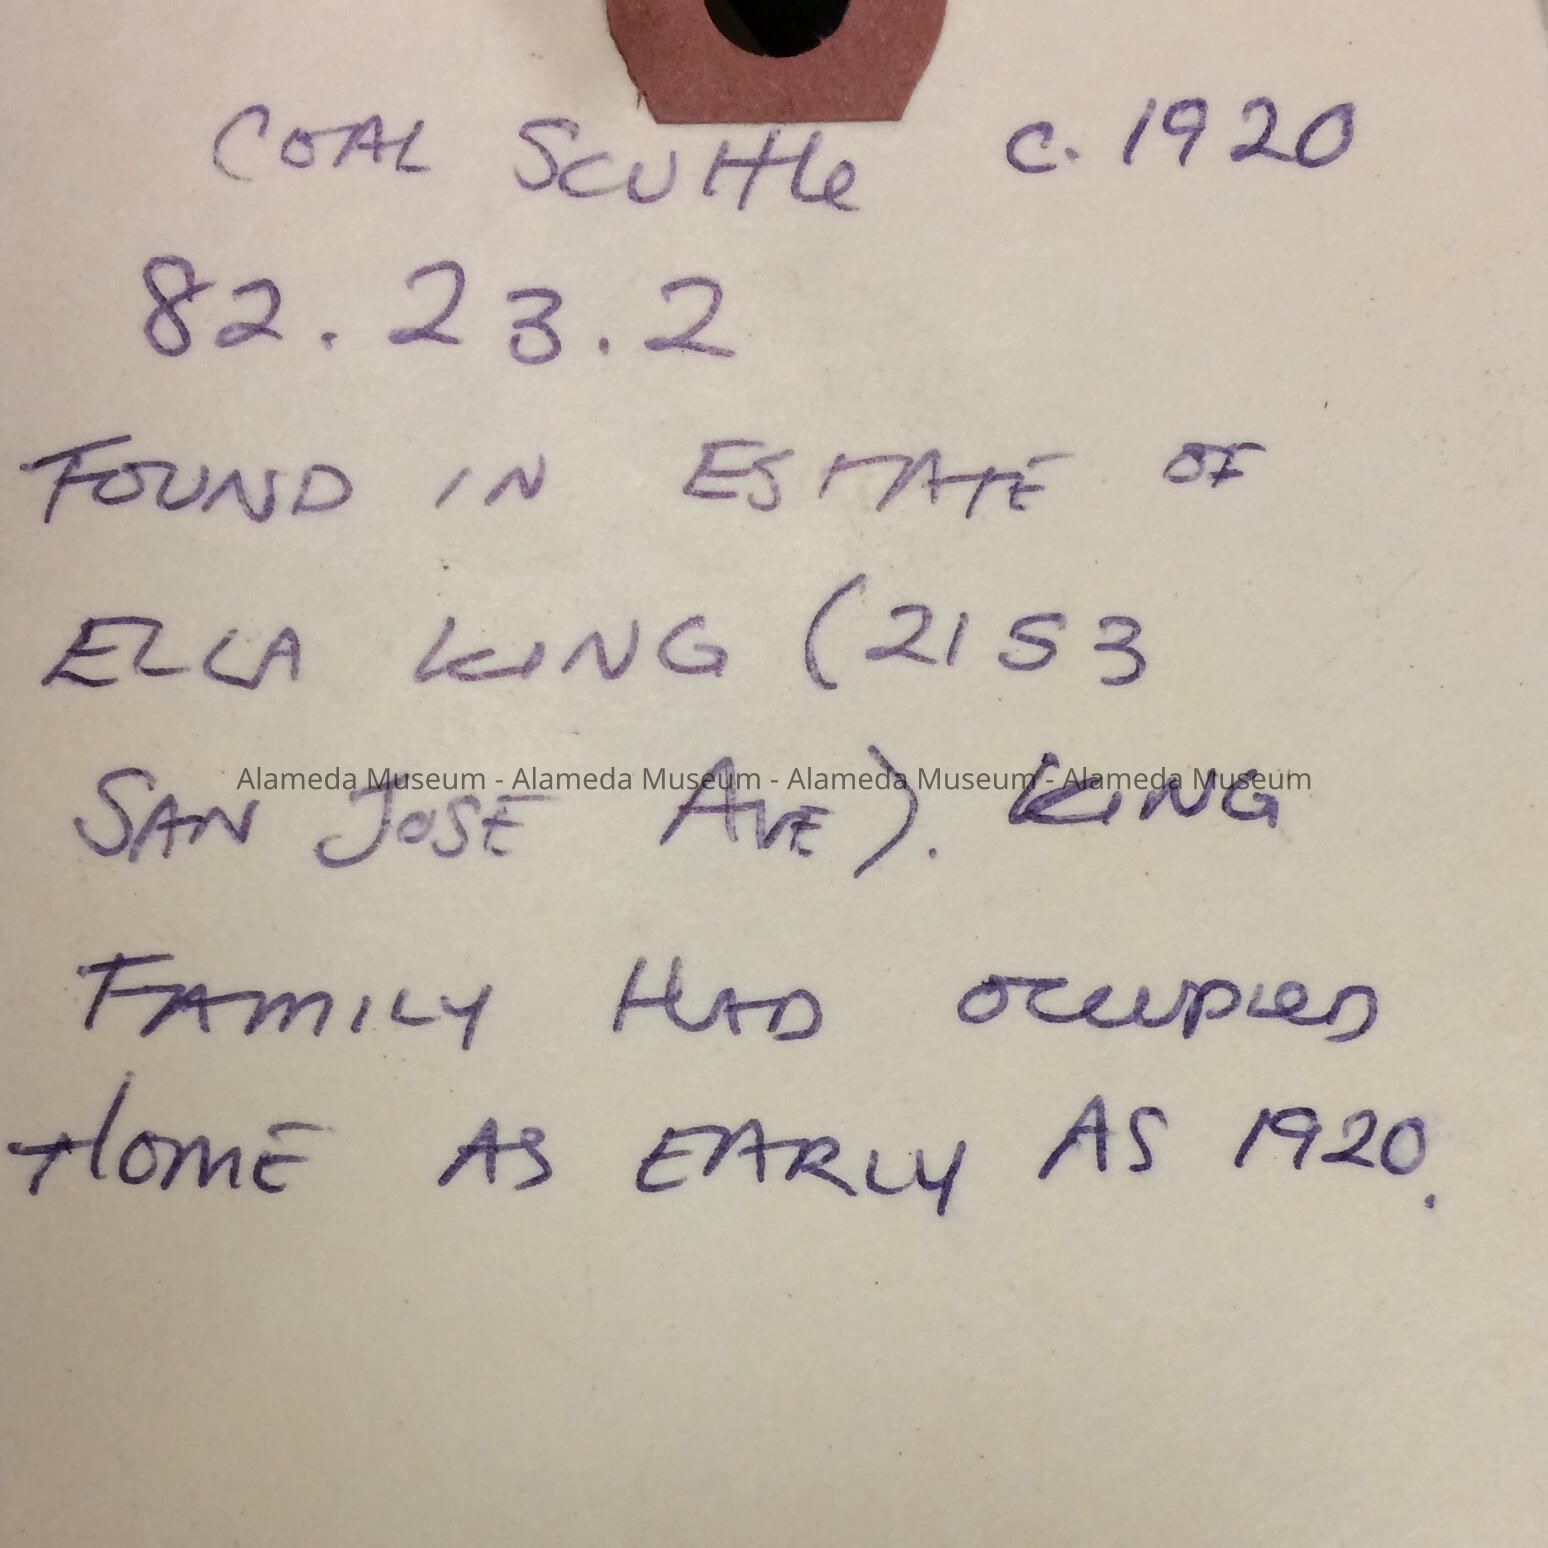 COAL Scuttle c. 1920
82.23.2
FOUND IN ESTATE OF
ELLA KING (2153
Alameda Museum - Alameda Museum - Alameda Museum - Alameda Museum
SAN JOSE AVE). KING
FAMILY HAD OCCUPIED
HOME AS EARLY AS 1920.